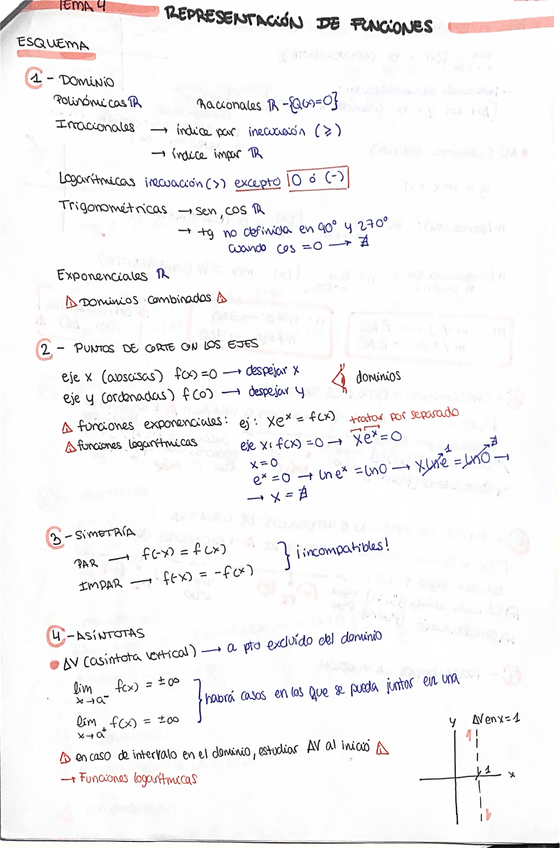 TEMA 4
REPRESENTACIÓN DE FUNCIONES
ESQUEMA
1 - DOMINIO
Polinómicas ℝ Racionales ℝ - {Q(x)=0}
Irracionales → índice par inecuación (≥)
→ índice impar ℝ
Logarítmicas inecuación (>) excepto 0 ó (-)
Trigonométricas → sen, cos ℝ
→ tg no definida en 90° y 270°
cuando cos = 0 → ∄
Exponenciales ℝ
⚠ Dominios combinados ⚠
2 - PUNTOS DE CORTE CON LOS EJES
eje x (abscisas) f(x)=0 → despejar x
eje y (ordenadas) f(0) → despejar y
dominios
⚠ funciones exponenciales: ej: xeˣ = f(x) tratar por separado
⚠ funciones logarítmicas eje x: f(x) = 0 → xeˣ = 0
x = 0
eˣ = 0 → ln eˣ = ln 0 → x ln e¹ = ln 0 ∄ →
→ x = ∄
3 - SIMETRÍA
PAR → f(-x) = f(x)
IMPAR → f(-x) = -f(x)
} ¡incompatibles!
4 - ASÍNTOTAS
• AV (asíntota vertical) → a pto excluído del dominio
lim x→a⁻ f(x) = ±∞
lim x→a⁺ f(x) = ±∞
} habrá casos en los que se pueda juntar en una
⚠ en caso de intervalo en el dominio, estudiar AV al inicio ⚠
→ Funciones logarítmicas
y AV en x = 1
1 x